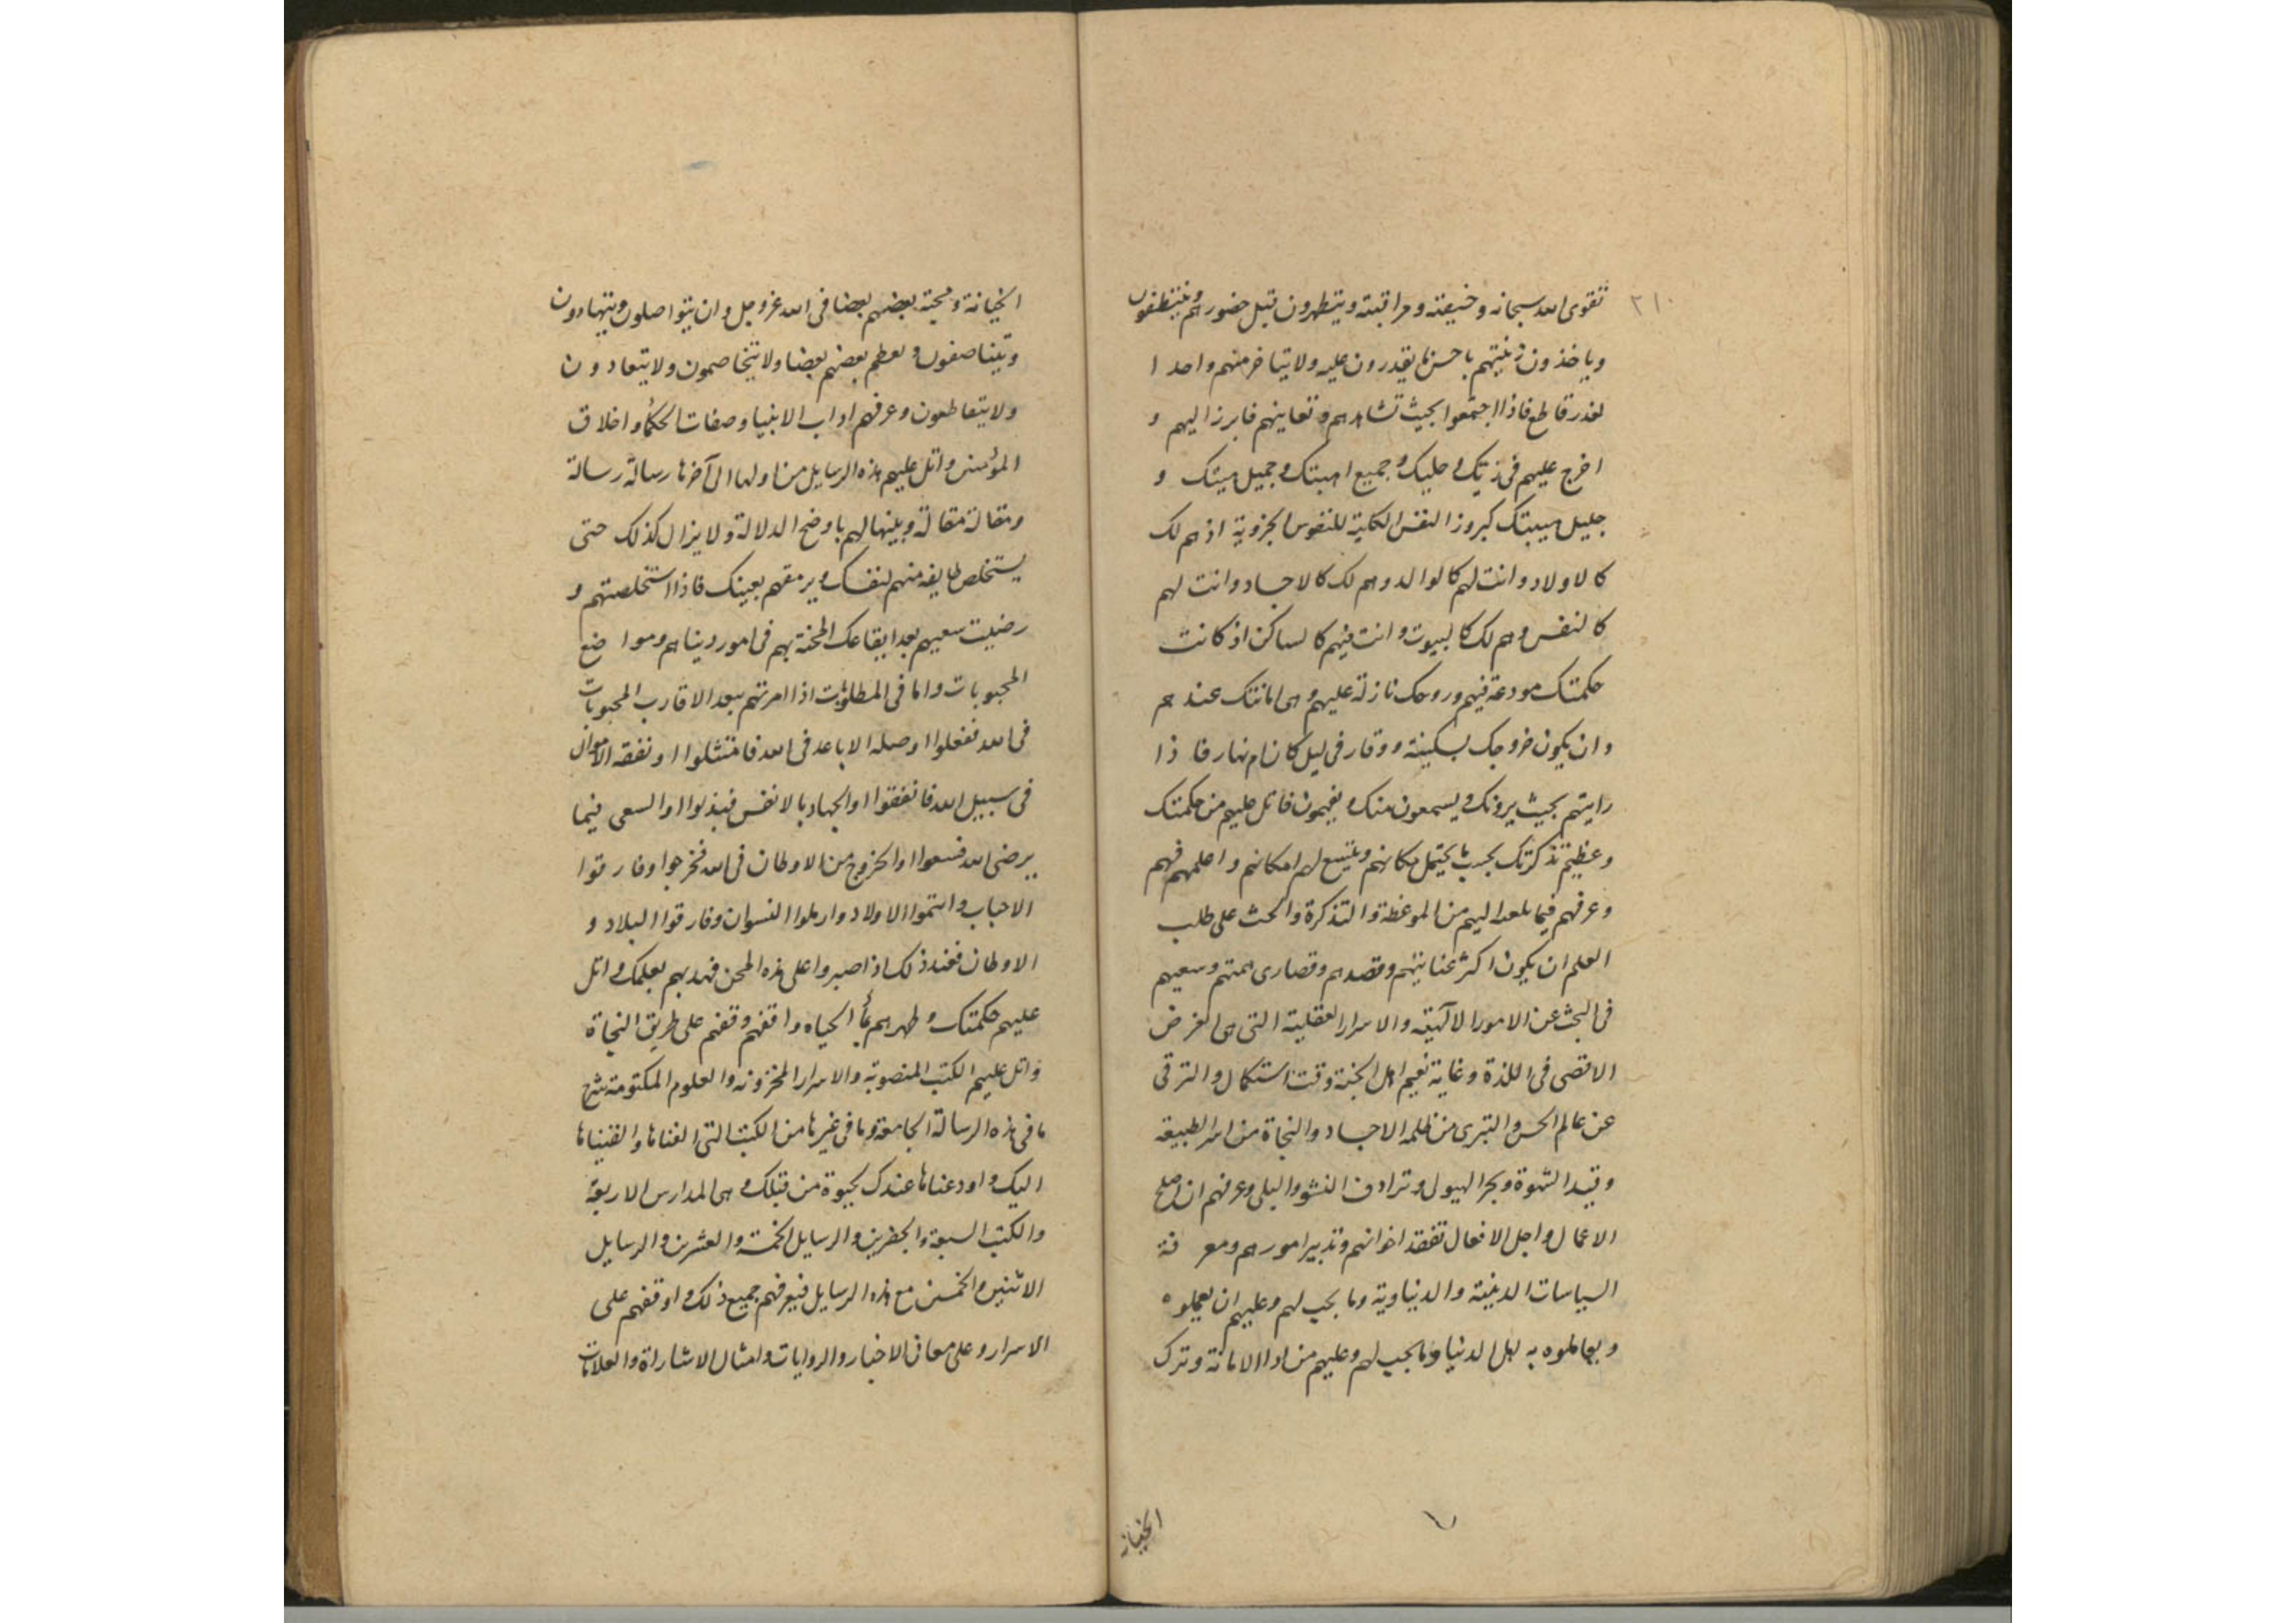 ٢١٠
تقوى الله سبحانه وخشيته ومراقبته ويتطهرون قبل حضورهم ويتنظفون
وياخذون زينتهم باحسن ما يقدرون عليه ولا يتاخر منهم واحدا
لعذر قاطع فاذا اجتمعوا بحيث تشاهدهم وتعاينهم فابرز اليهم و
اخرج عليهم في زيك وحليك وجميع اهبتك وجميل هيئتك و
جليل هيبتك كبروز النفس الكلية للنفوس الجزوية اذ هم لك
كالاولاد وانت لهم كالوالد وهم لك كالاجساد وانت لهم
كالنفس وهم لك كالبيوت وانت فيهم كالساكن اذ كانت
حكمتك مودعة فيهم وروحك نازلة عليهم وهي امانتك عندهم
وان يكون خروجك بسكينة ووقار في ليل كان ام نهار فاذا
رايتهم بحيث يرونك ويسمعون منك ويفهمون فاتل عليهم من حكمتك
وعظيم تذكرتك بحسب ما يحتمل مكانهم ويتسع لهم امكانهم واعلمهم فهم
وعرفهم فيما اليهم من الموعظة والتذكرة والحث على طلب
العلم ان يكون اكثر عنايتهم وقصدهم وقصارى همتهم وسعيهم
في البحث عن الامور الالهية والاسرار العقلية التي هي الغرض
الاقصى في اللذة وغاية نعيم اهل الجنة وقت استكمال والترقى
عن عالم الحس والتبرى من ظلمة الاجساد والنجاة من اسر الطبيعة
وقيد الشهوة وبحر الهيولى وترادف النشو والبلى وعرفهم ان اصلح
الاعمال واجل الافعال تفقد اخوانهم وتدبير امورهم ومعرفة
السياسات الدينية والدنياوية وما يجب لهم وعليهم ان يعملوه
ويعاملوه به اهل الدنيا وما يجب لهم وعليهم من ادا الامانة وترك
الخيانة
الخيانة ومحبة بعضهم بعضا في الله عز وجل وان يتواصلون ويتهادون
ويتناصفون ويعظم بعضهم بعضا ولا يتخاصمون ولا يتعادون
ولا يتقاطعون وعرفهم اداب الانبيا وصفات الحكما واخلاق
المؤمنين واتل عليهم هذه الرسايل من اولها الى آخرها رسالة رسالة
ومقالة مقالة وبينها لهم باوضح الدلالة ولا يزال كذلك حتى
يستخلص طايفة منهم لنفسك ويرمقهم بعينك فاذا استخلصتهم و
رضيت سعيهم بعد ايقاعك المحنة بهم في امور دينهم ومواضع
المحبوبات واما في المطلوبات اذا امرتهم ببعد الاقارب المحبوبات
في الله ففعلوا او صلة الاباعد في الله فامتثلوا او نفقة الاموال
في سبيل الله فانفقوا او الجهاد بالانفس فبذلوا او السعى فيما
يرضى الله فسعوا او الخروج من الاوطان في الله فخرجوا وفارقوا
الاحباب وايتموا الاولاد وارملوا النسوان وفارقوا البلاد و
الاوطان فعند ذلك اذا صبروا على هذه المحن فهذبهم بعلمك واتل
عليهم حكمتك وطهرهم بمأ الحياه واقفهم وقفهم على طريق النجاة
واتل عليهم الكتب المنصوبة والاسرار المخزونه والعلوم المكتومة شرح
ما في هذه الرسالة الجامعة وما في غيرها من الكتب التي الفناها والقيناها
اليك واودعناها عندك من قبلك وهي المدارس الاربعة
والكتب السبعة والجفرين والرسايل الخمسة والعشرين والرسايل
الاثنين والخمسين مع هذه الرسايل فيعرفهم جميع ذلك واوقفهم على
الاسرار وعلى معاني الاخبار والروايات وامثال الاشاراة والعلامات